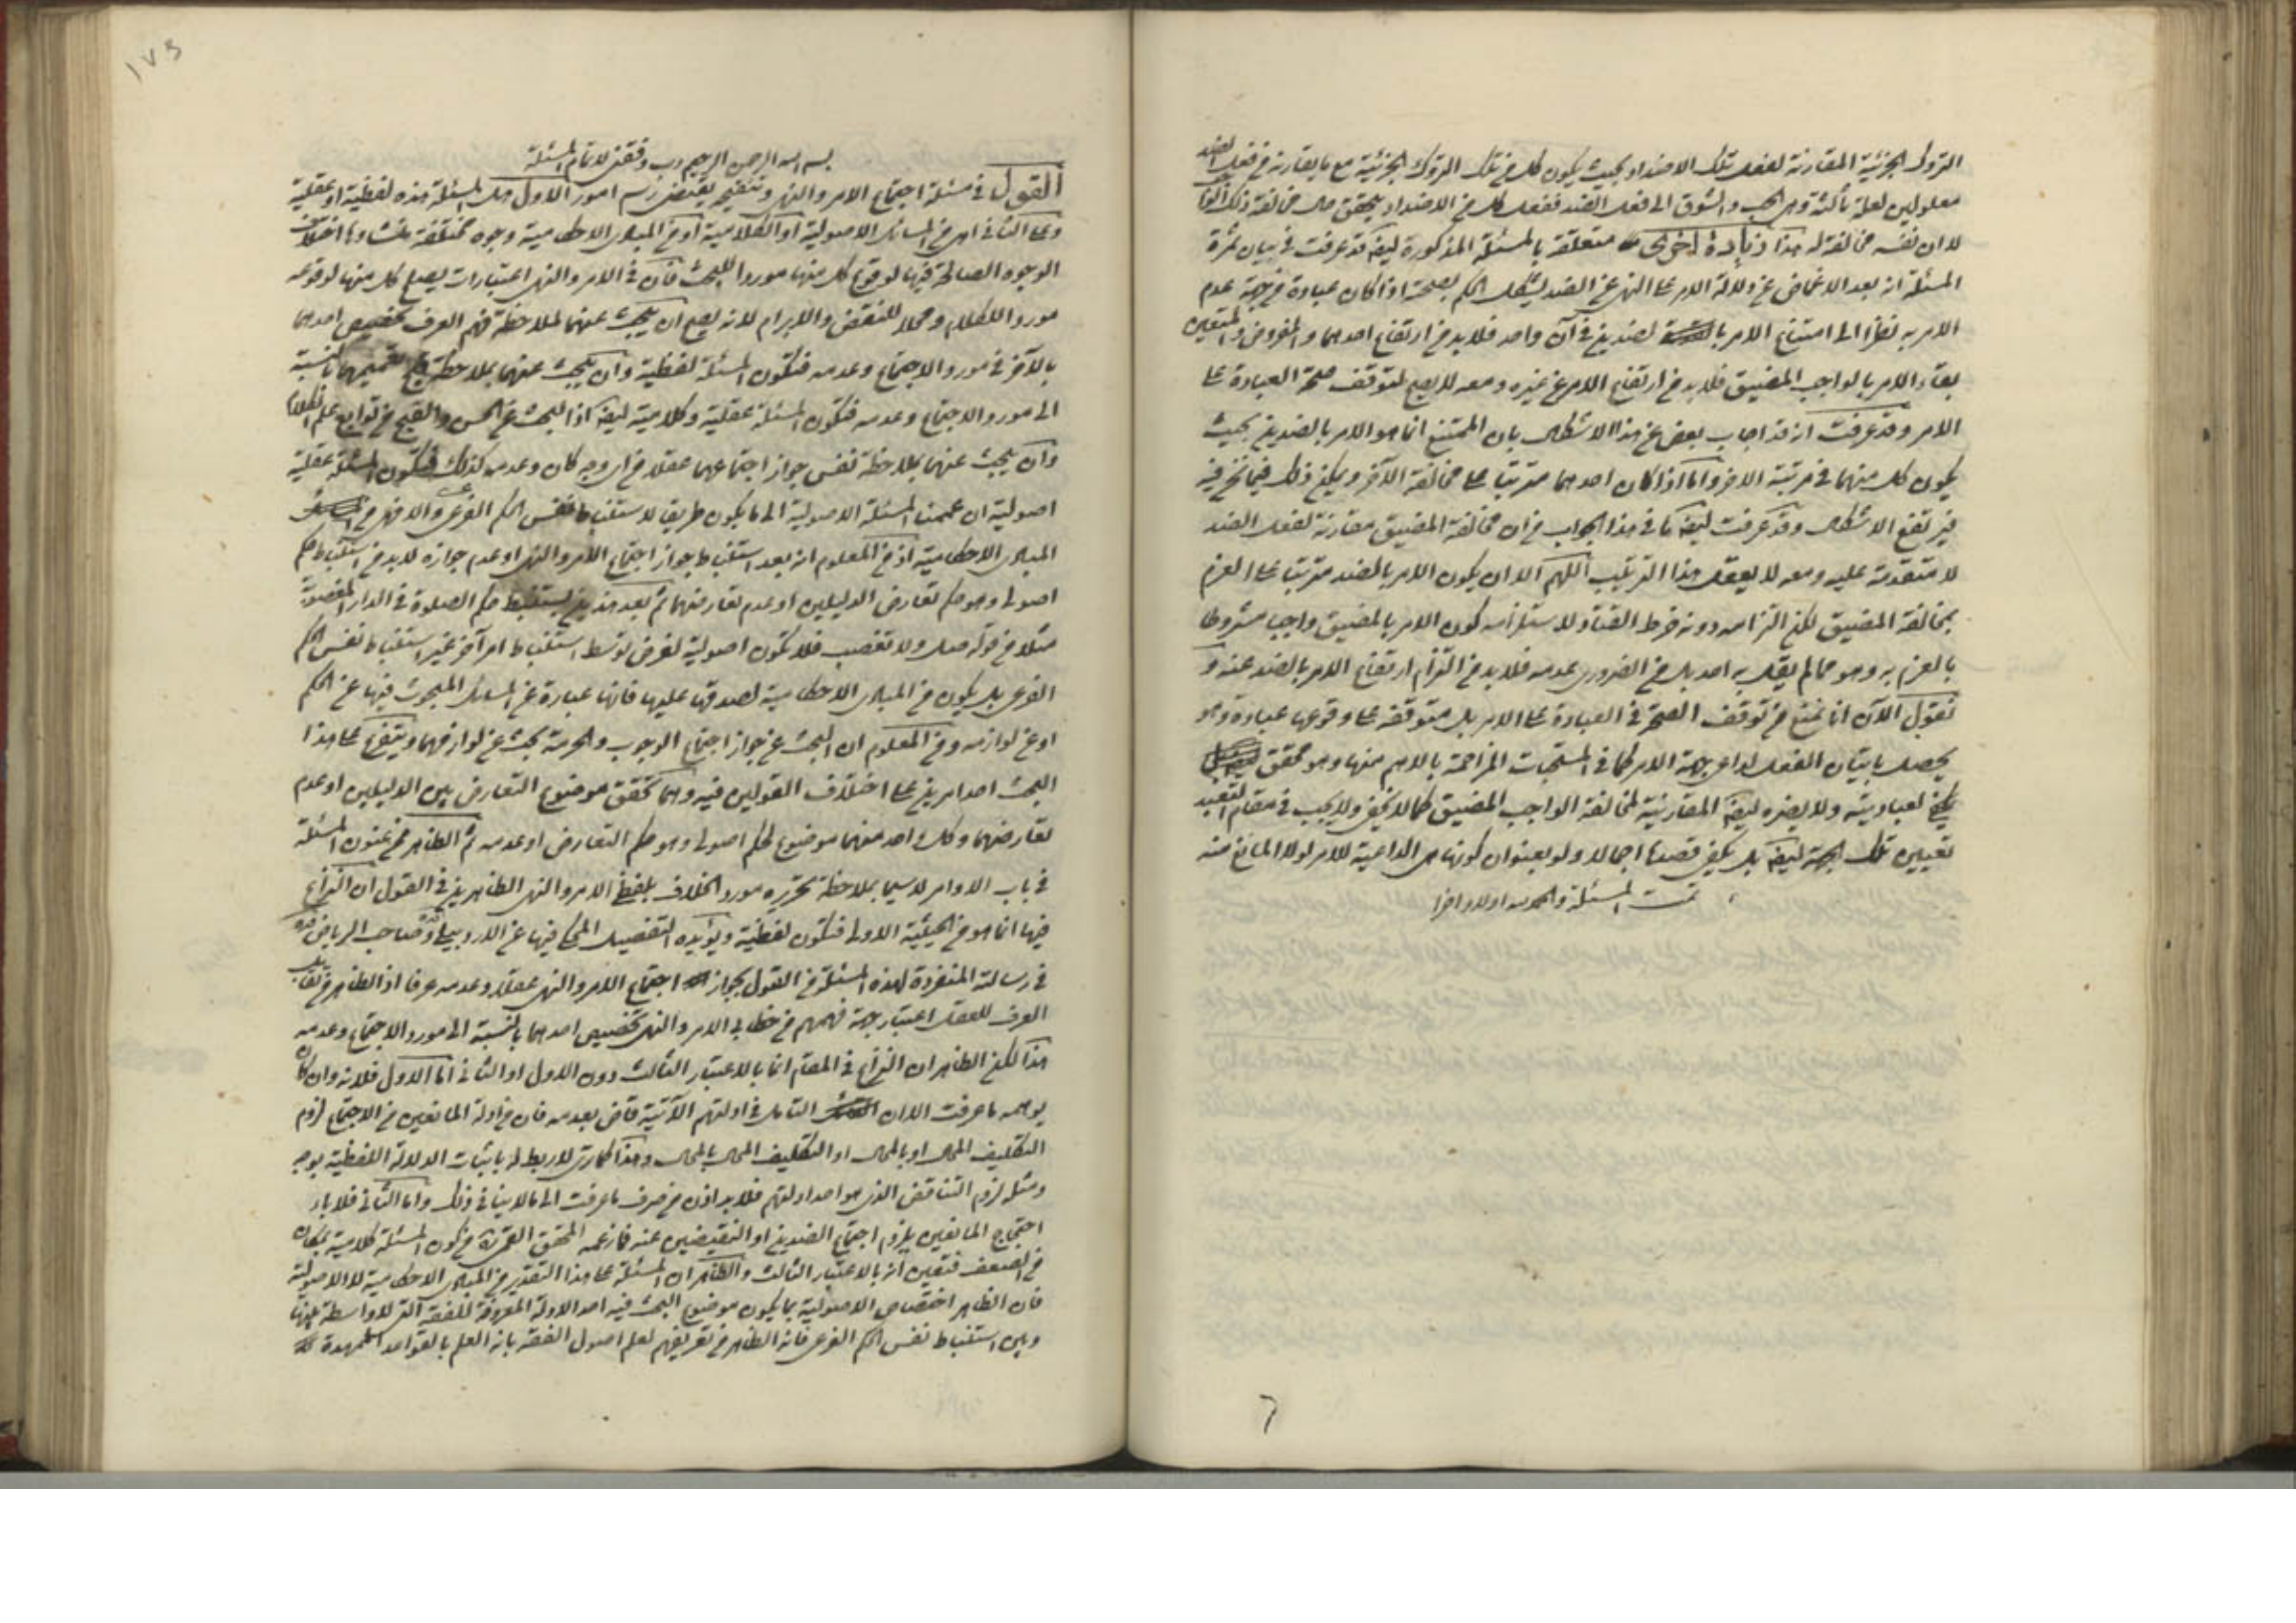 التروك الجزئية المقارنة لفعل تلك الاضداد بحيث يكون كل من تلك التروك الجزئية مع ما يقارنه من فعل الضد
معلولين لعلة ثالثة وهى الحب والشوق الى فعل الضد ففعل كل من الاضداد يتحقق مخالفة ذلك
لا ان نفسه مخالفة له هذا زيادة اخرى متعلقة بالمسئلة المذكورة ايضا قد عرفت فى بيان ثمرة
المسئلة انه بعد الاغماض عن دلالة الامر على النهى عن الضد يشكل الحكم بصحته اذا كان عبادة من جهة عدم
الامر به نظرا الى امتناع الامر بالضدين فى آن واحد فلا بد من ارتفاع احدهما والمفروض
بقاء الامر بالواجب المضيق فلا بد من ارتفاع الامر عن غيره ومعه لا يصح لتوقف صحة العبادة على
الامر وقد عرفت انه قد اجاب بعض عن هذا الاشكال بان الممتنع انما هو الامر بالضدين بحيث
يكون كل منهما فى مرتبة الاخر واما اذا كان احدهما مترتبا على مخالفة الآخر ويمكن ذلك فيما نحن فيه
فيرتفع الاشكال وقد عرفت ايضا ما فى هذا الجواب من ان مخالفة المضيق مقارنة لفعل الضد
لا متقدمة عليه ومعه لا يعقل هذا الترتب اللهم الا ان يكون الامر بالضد مترتبا على العزم
بمخالفة المضيق لكن التزامه دونه خرط القتاد لاستلزامه كون الامر بالمضيق واجبا مشروطا
بالعزم به وهو مما لم يقل به احد بل من الضرورى عدمه فلا بد من التزام ارتفاع الامر بالضد عنه و
نقول الآن انا نمنع من توقف الصحة فى العبادة على الامر بل متوقفة على وقوعها عبادة وهو
يحصل باتيان الفعل لداعى جهة الامر كما فى المستحبات المزاحمة بالاهم منها وهو محقق
لعباديته ولا يضره ايضا المقارنية لمخالفة الواجب المضيق كما لا يخفى ولا يجب فى مقام التعبد
تعيين تلك الجهة ايضا بل يكفى قصدها اجمالا ولو بعنوان كونها هى الداعية للامر لولا المانع منه
تمت المسئلة والحمد لله اولا وآخرا
٦
١٧٥
بسم الله الرحمن الرحيم رب وفقنى لاتمام المسئلة
القول فى مسئلة اجتماع الامر والنهى وتنقيحه يقتضى رسم امور الاول هل المسئلة هذه لفظية او عقلية
وعلى الثانى اهى من المسائل الاصولية او الكلامية او من المبادى الاحكامية وجوه مختلفة منشاؤها اختلاف
الوجوه الصالحة فيها لوقوع كل منها موردا للبحث فان فى الامر والنهى اعتبارات يصلح كل منها لوقوعه
موردا للكلام ومحلا للنقض والابرام لانه يصح ان يبحث عنهما لملاحظة فهم العرف تخصيص احدهما
بالآخر فى مورد الاجتماع وعدمه فتكون المسئلة لفظية وان يبحث عنهما بملاحظة قبح تعميمهما بالنسبة
الى مورد الاجتماع وعدمه فتكون المسئلة عقلية وكلامية ايضا اذ البحث عن الحسن والقبح من توابع علم الكلام
وان يبحث عنهما بملاحظة نفس جواز اجتماعهما عقلا من اى وجه كان وعدمه كذلك فتكون المسئلة عقلية
اصولية ان عممنا المسئلة الاصولية الى ما يكون طريقا لاستنباط نفس الحكم الفرعى والا فهى من
المبادى الاحكامية اذ من المعلوم انه بعد استنباط جواز اجتماع الامر والنهى او عدم جوازه لا بد من استنباط حكم
اصولى وهو حكم تعارض الدليلين او عدم تعارضهما ثم بعد هذين يستنبط حكم الصلوة فى الدار المغصوبة
مثلا من قوله صل ولا تغصب فلا تكون اصولية لفرض توسط استنباط امر آخر غير استنباط نفس الحكم
الفرعى بل يكون من المبادى الاحكامية لصدقها عليها فانها عبارة عن المسائل المبحوث فيها عن الحكم
او عن لوازمه ومن المعلوم ان البحث عن جواز اجتماع الوجوب والحرمة بحث عن لوازمهما ويتفرع على هذا
البحث احد امرين على اختلاف القولين فيه وهما تحقق موضوع التعارض بين الدليلين او عدم
تعارضهما وكل واحد منهما موضوع لحكم اصولى وهو حكم التعارض او عدمه ثم الظاهر ممن عنون المسئلة
فى باب الاوامر لا سيما بملاحظة تحريره مورد الخلاف بلفظ الامر والنهى الظاهرين فى القول ان النزاع
فيها انما هو من الحيثية الاولى فتكون لفظية ويؤيده التفصيل المحكى فيها عن الاردبيلى وصاحب الرياض قده
فى رسالته المنفردة لهذه المسئلة من القول بجواز اجتماع الامر والنهى عقلا وعدمه عرفا اذ الظاهر من تقابل
العرف للعقل اعتبار جهة فهمهم من خطابى الامر والنهى تخصيص احدهما بالنسبة الى مورد الاجتماع وعدمه
هذا لكن الظاهر ان النزاع فى المقام انما بالاعتبار الثالث دون الاول او الثانى اما الاول فلانه وان كان
يوهمه ما عرفت الا ان التامل فى ادلتهم الآتية قاض بعدمه فان من ادلة المانعين من الاجتماع لزوم
التكليف المحال او بالمحال او التكليف المحال بالمحال وهذا كما ترى لا ربط له باثبات الدلالة اللفظية بوجه
ومثله لزوم التناقض الذى هو احد ادلتهم فلا بد اذن من صرف ما عرفت الى ما لا ينافى ذلك واما الثانى فلاباء
احتجاج المانعين بلزوم اجتماع الضدين او النقيضين عنه فما زعمه المحقق القمى ره من كون المسئلة كلامية بمكان
من الضعف فتعين انه بالاعتبار الثالث والظاهر ان المسئلة على هذا التقدير من المبادى الاحكامية لا الاصولية
فان الظاهر اختصاص الاصولية بما يكون موضوع البحث فيه احد الادلة المعروفة للفقه التى لا واسطة بينها
وبين استنباط نفس الحكم الفرعى فانه الظاهر من تعريفهم لعلم اصول الفقه بانه العلم بالقواعد الممهدة